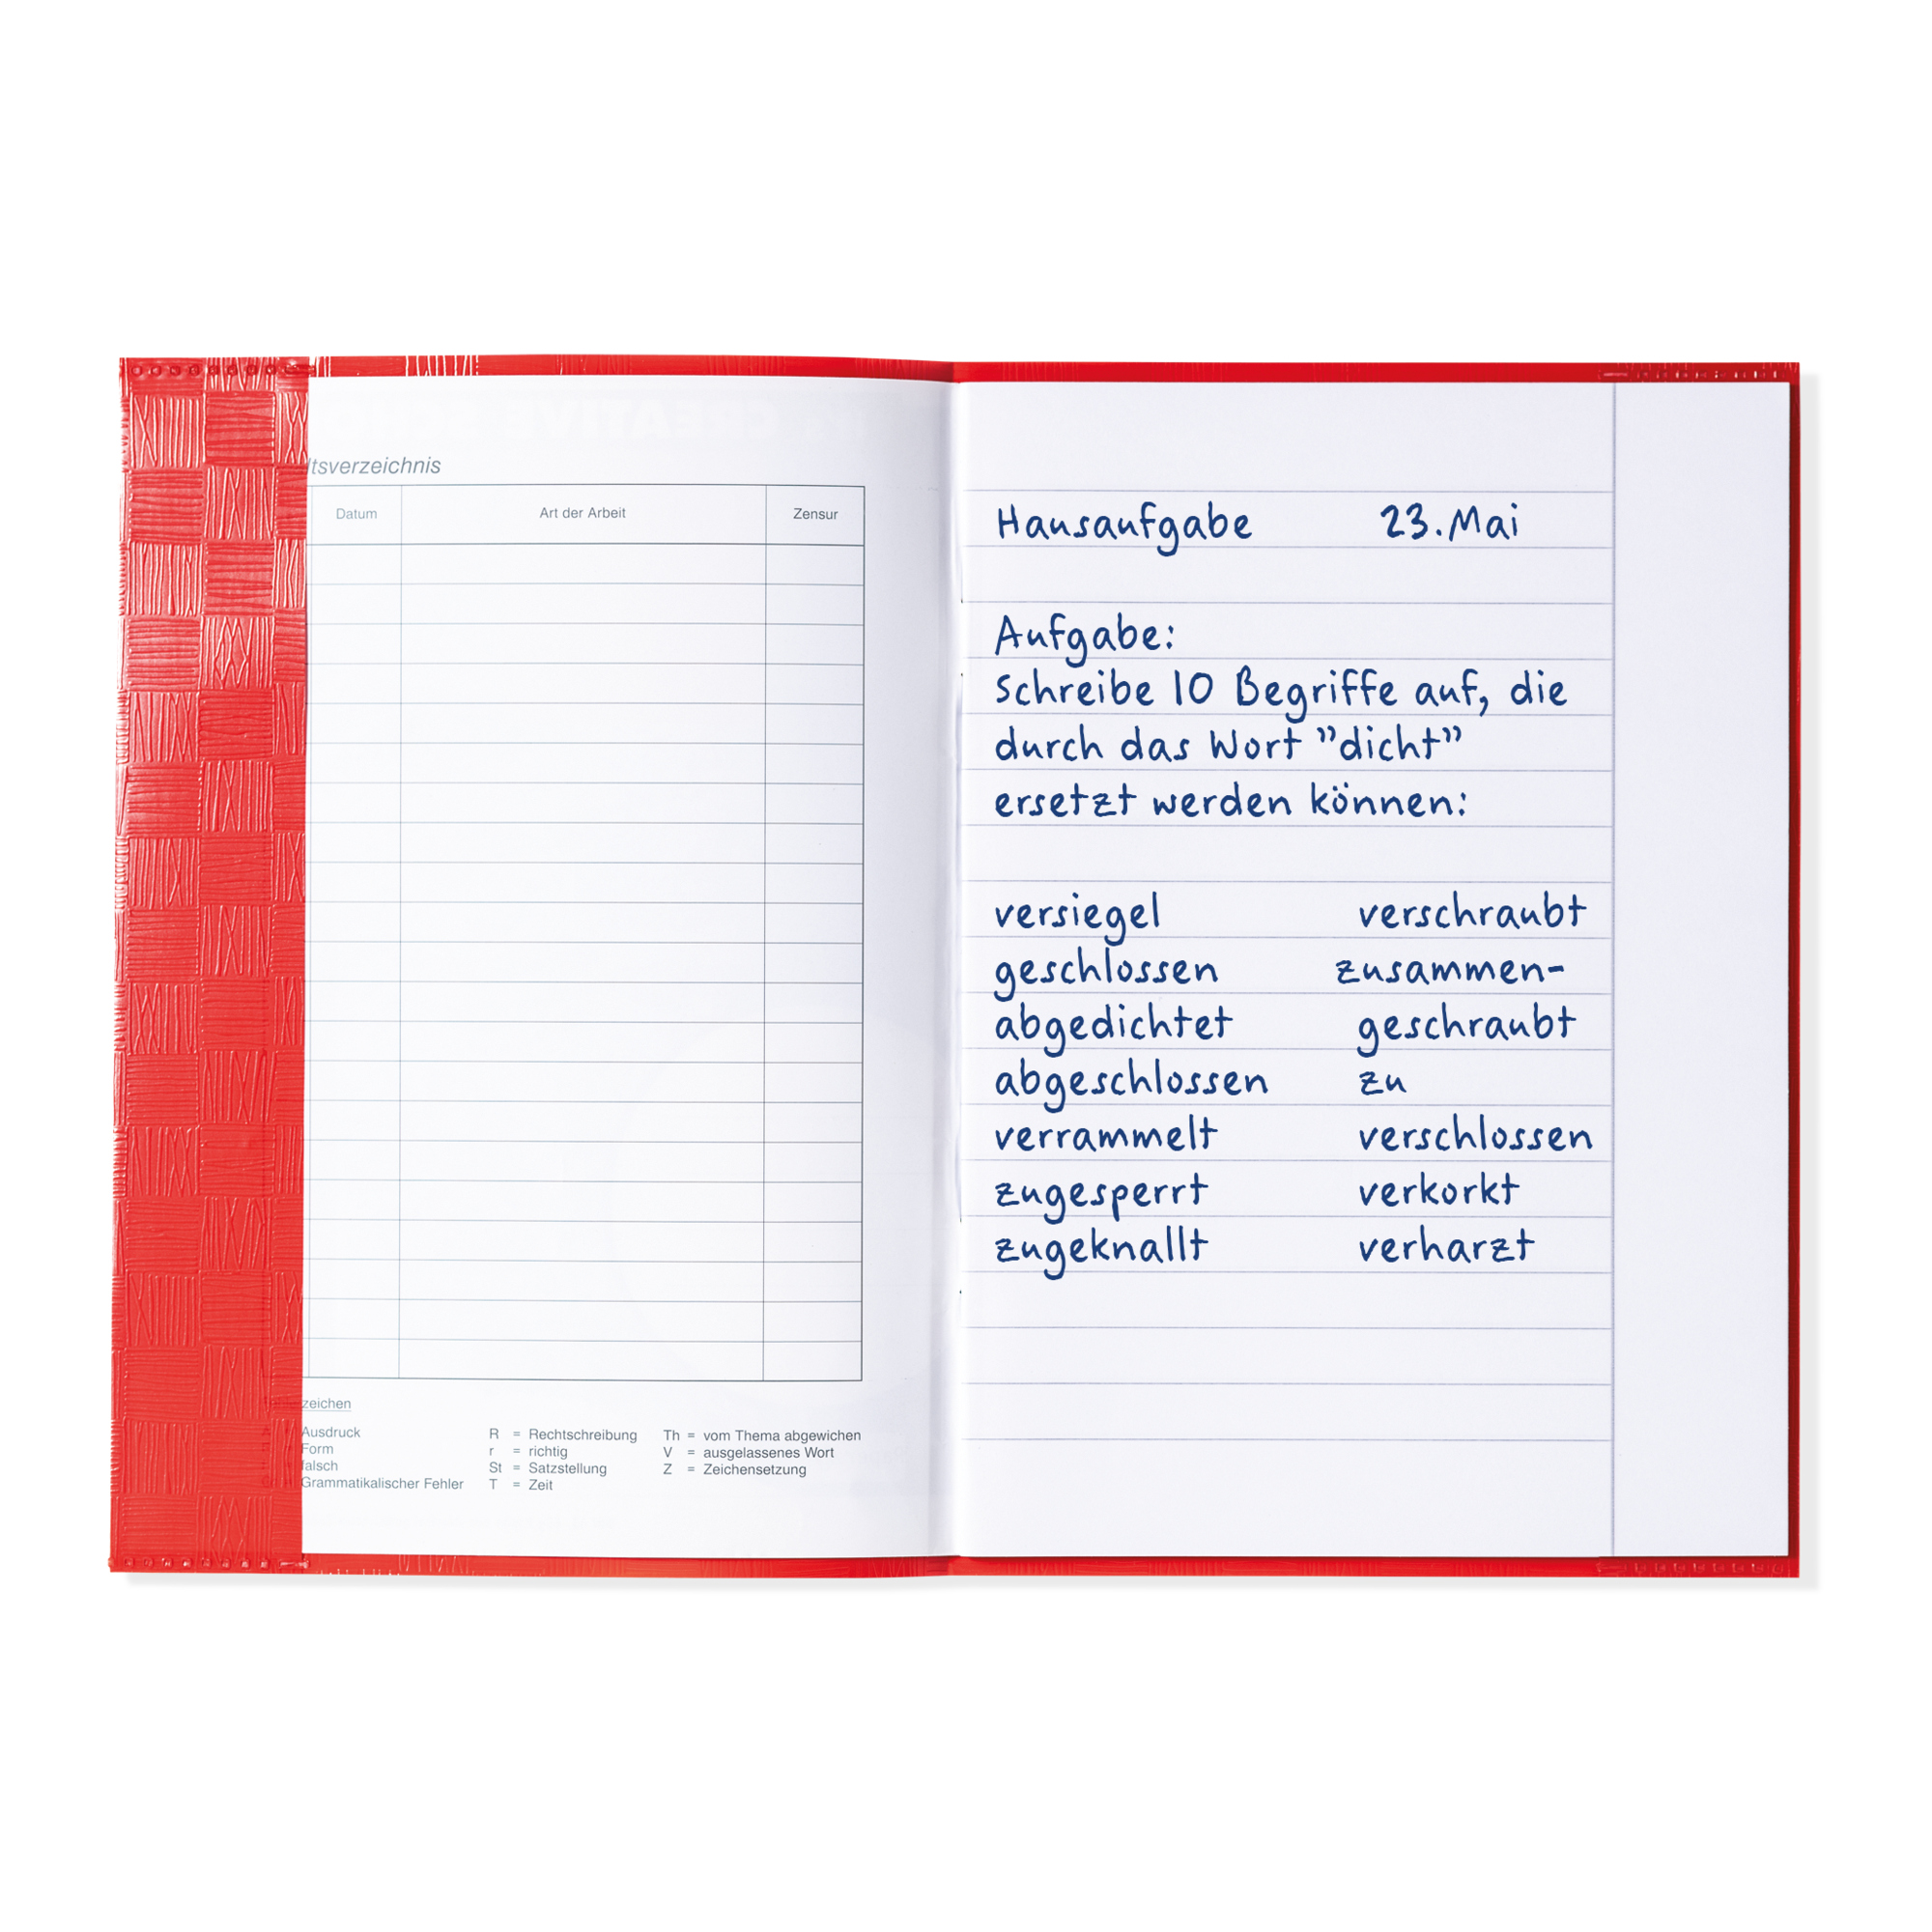 ltsverzeichnis
Datum Art der Arbeit Zensur
zeichen
Ausdruck R = Rechtschreibung Th = vom Thema abgewichen
Form r = richtig V = ausgelassenes Wort
falsch St = Satzstellung Z = Zeichensetzung
Grammatikalischer Fehler T = Zeit
Hausaufgabe 23. Mai
Aufgabe:
Schreibe 10 Begriffe auf, die
durch das Wort ”dicht”
ersetzt werden können:
versiegel verschraubt
geschlossen zusammen-
abgedichtet geschraubt
abgeschlossen zu
verrammelt verschlossen
zugesperrt verkorkt
zugeknallt verharzt